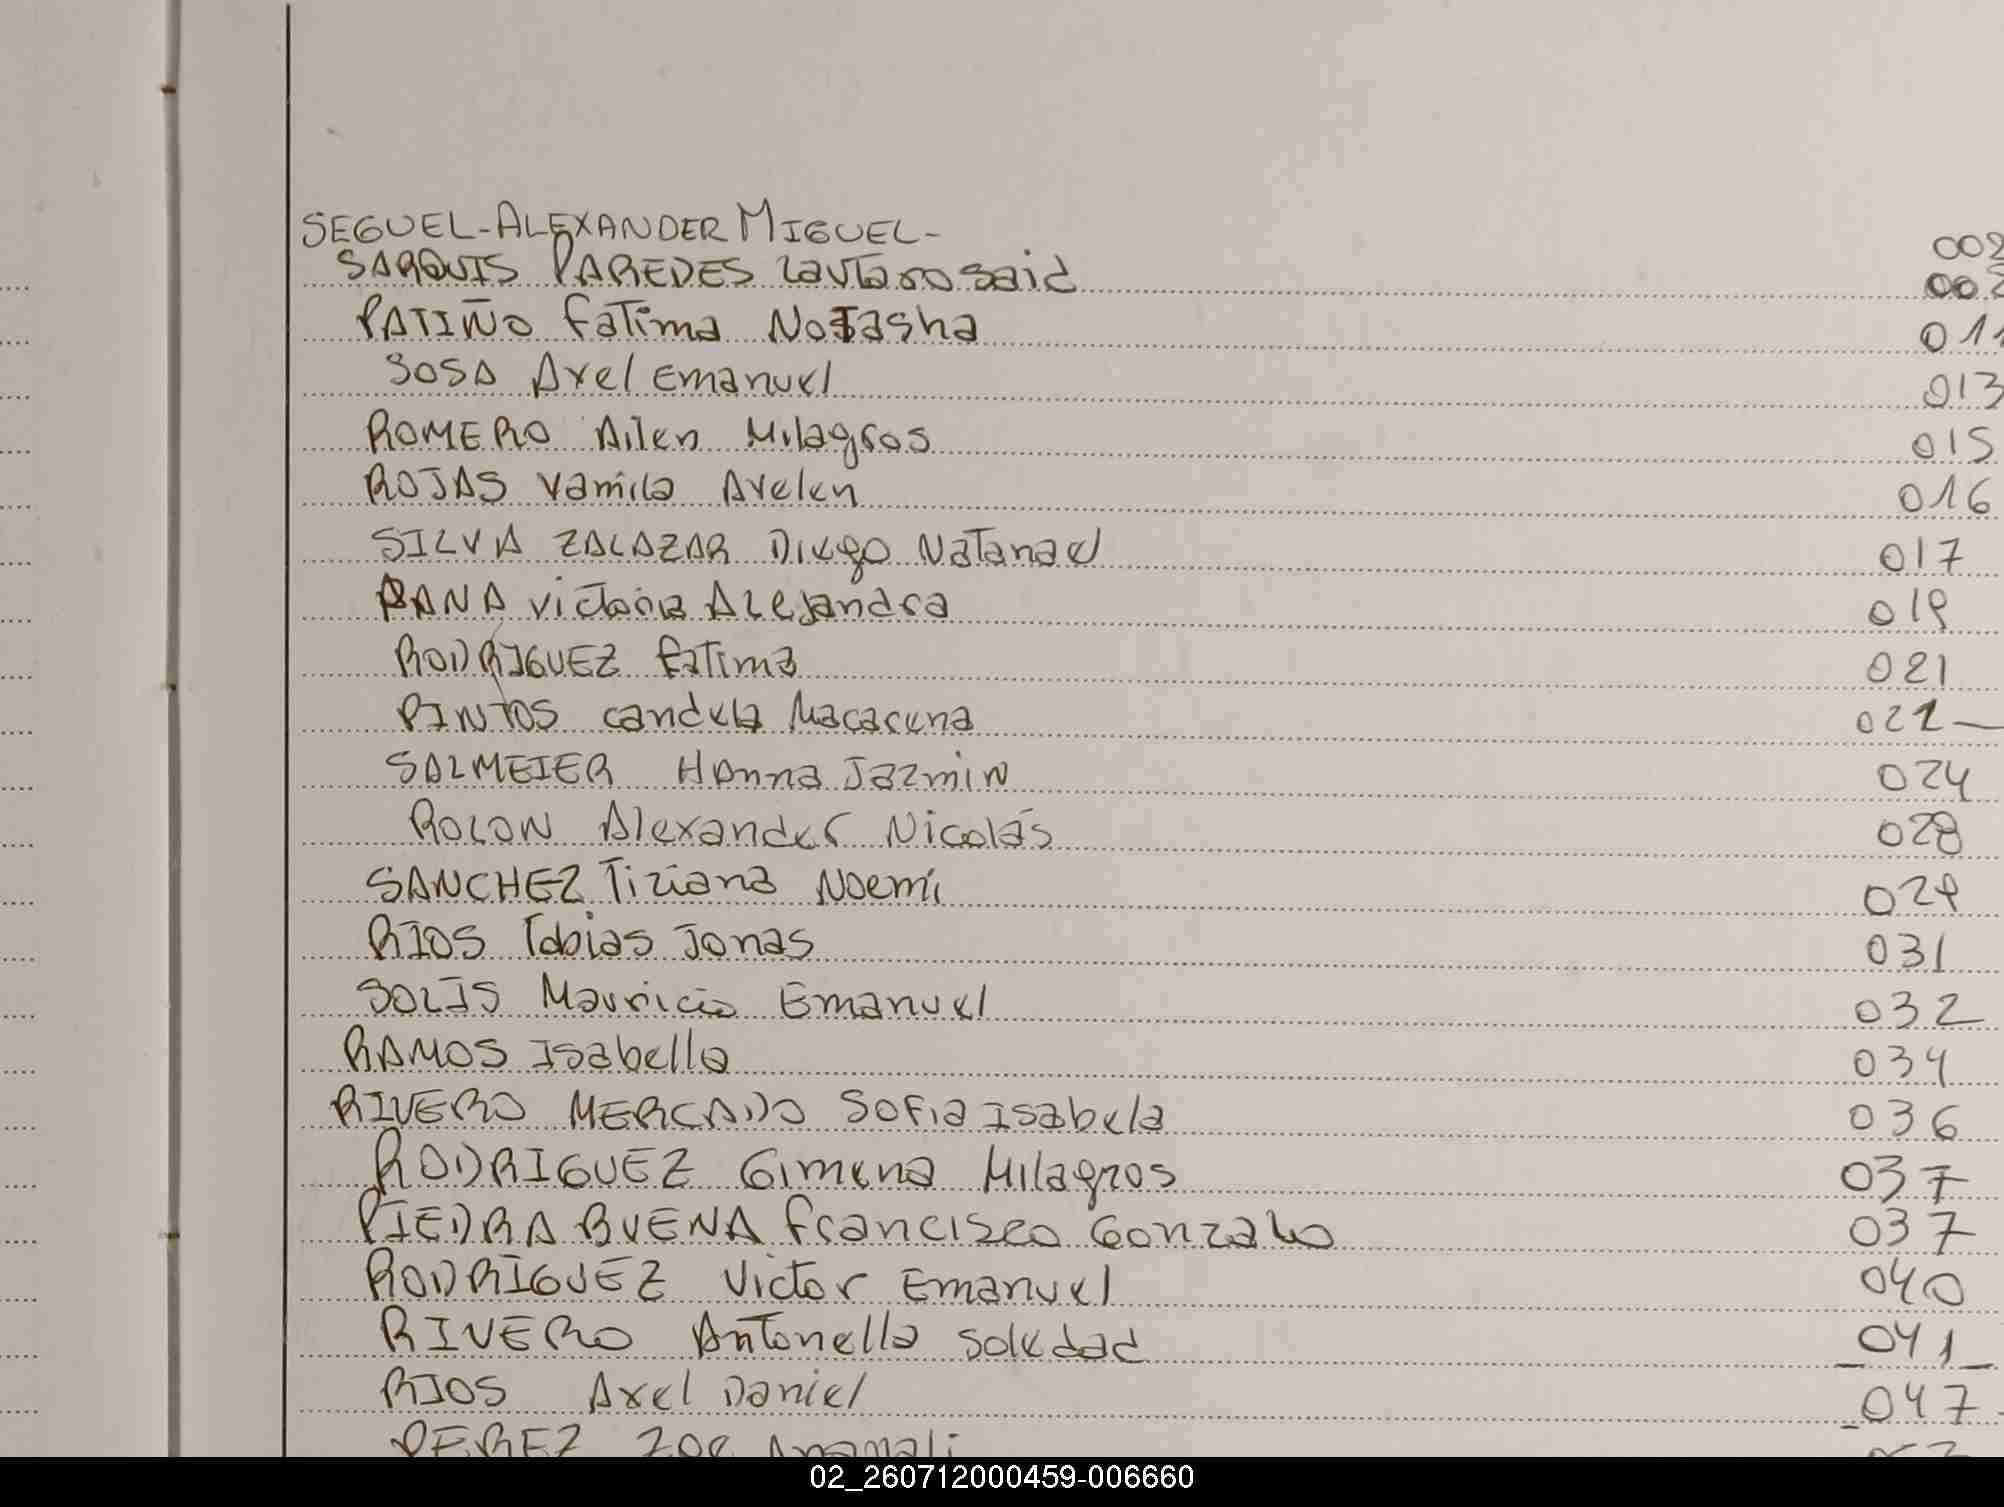 SEGUEL-ALEXANDER MIGUEL- 002
SARQUIS PAREDES Lautaro said 002
PATIÑO Fatima Natasha 011
SOSA Axel Emanuel 013
ROMERO Ailen Milagros 015
ROJAS Yamila Ayelen 016
SILVA ZALAZAR Diego Natanael 017
PANA victoria Alejandra 019
RODRIGUEZ Fatima 021
PINTOS candela Macarena 022
SALMEIER HAnna Jazmin 024
ROLON Alexander Nicolás 028
SANCHEZ Tiziana Noemí 029
RIOS Tobias Jonas 031
SOLIS Mauricio Emanuel 032
RAMOS Isabella 034
RIVERO MERCADO Sofia Isabela 036
RODRIGUEZ Gimena Milagros 037
PIEDRA BUENA francisco Gonzalo 037
RODRIGUEZ Victor Emanuel 040
RIVERO Antonella soledad 041
RIOS Axel Daniel 047
PEREZ Zoe
02_260712000459-006660